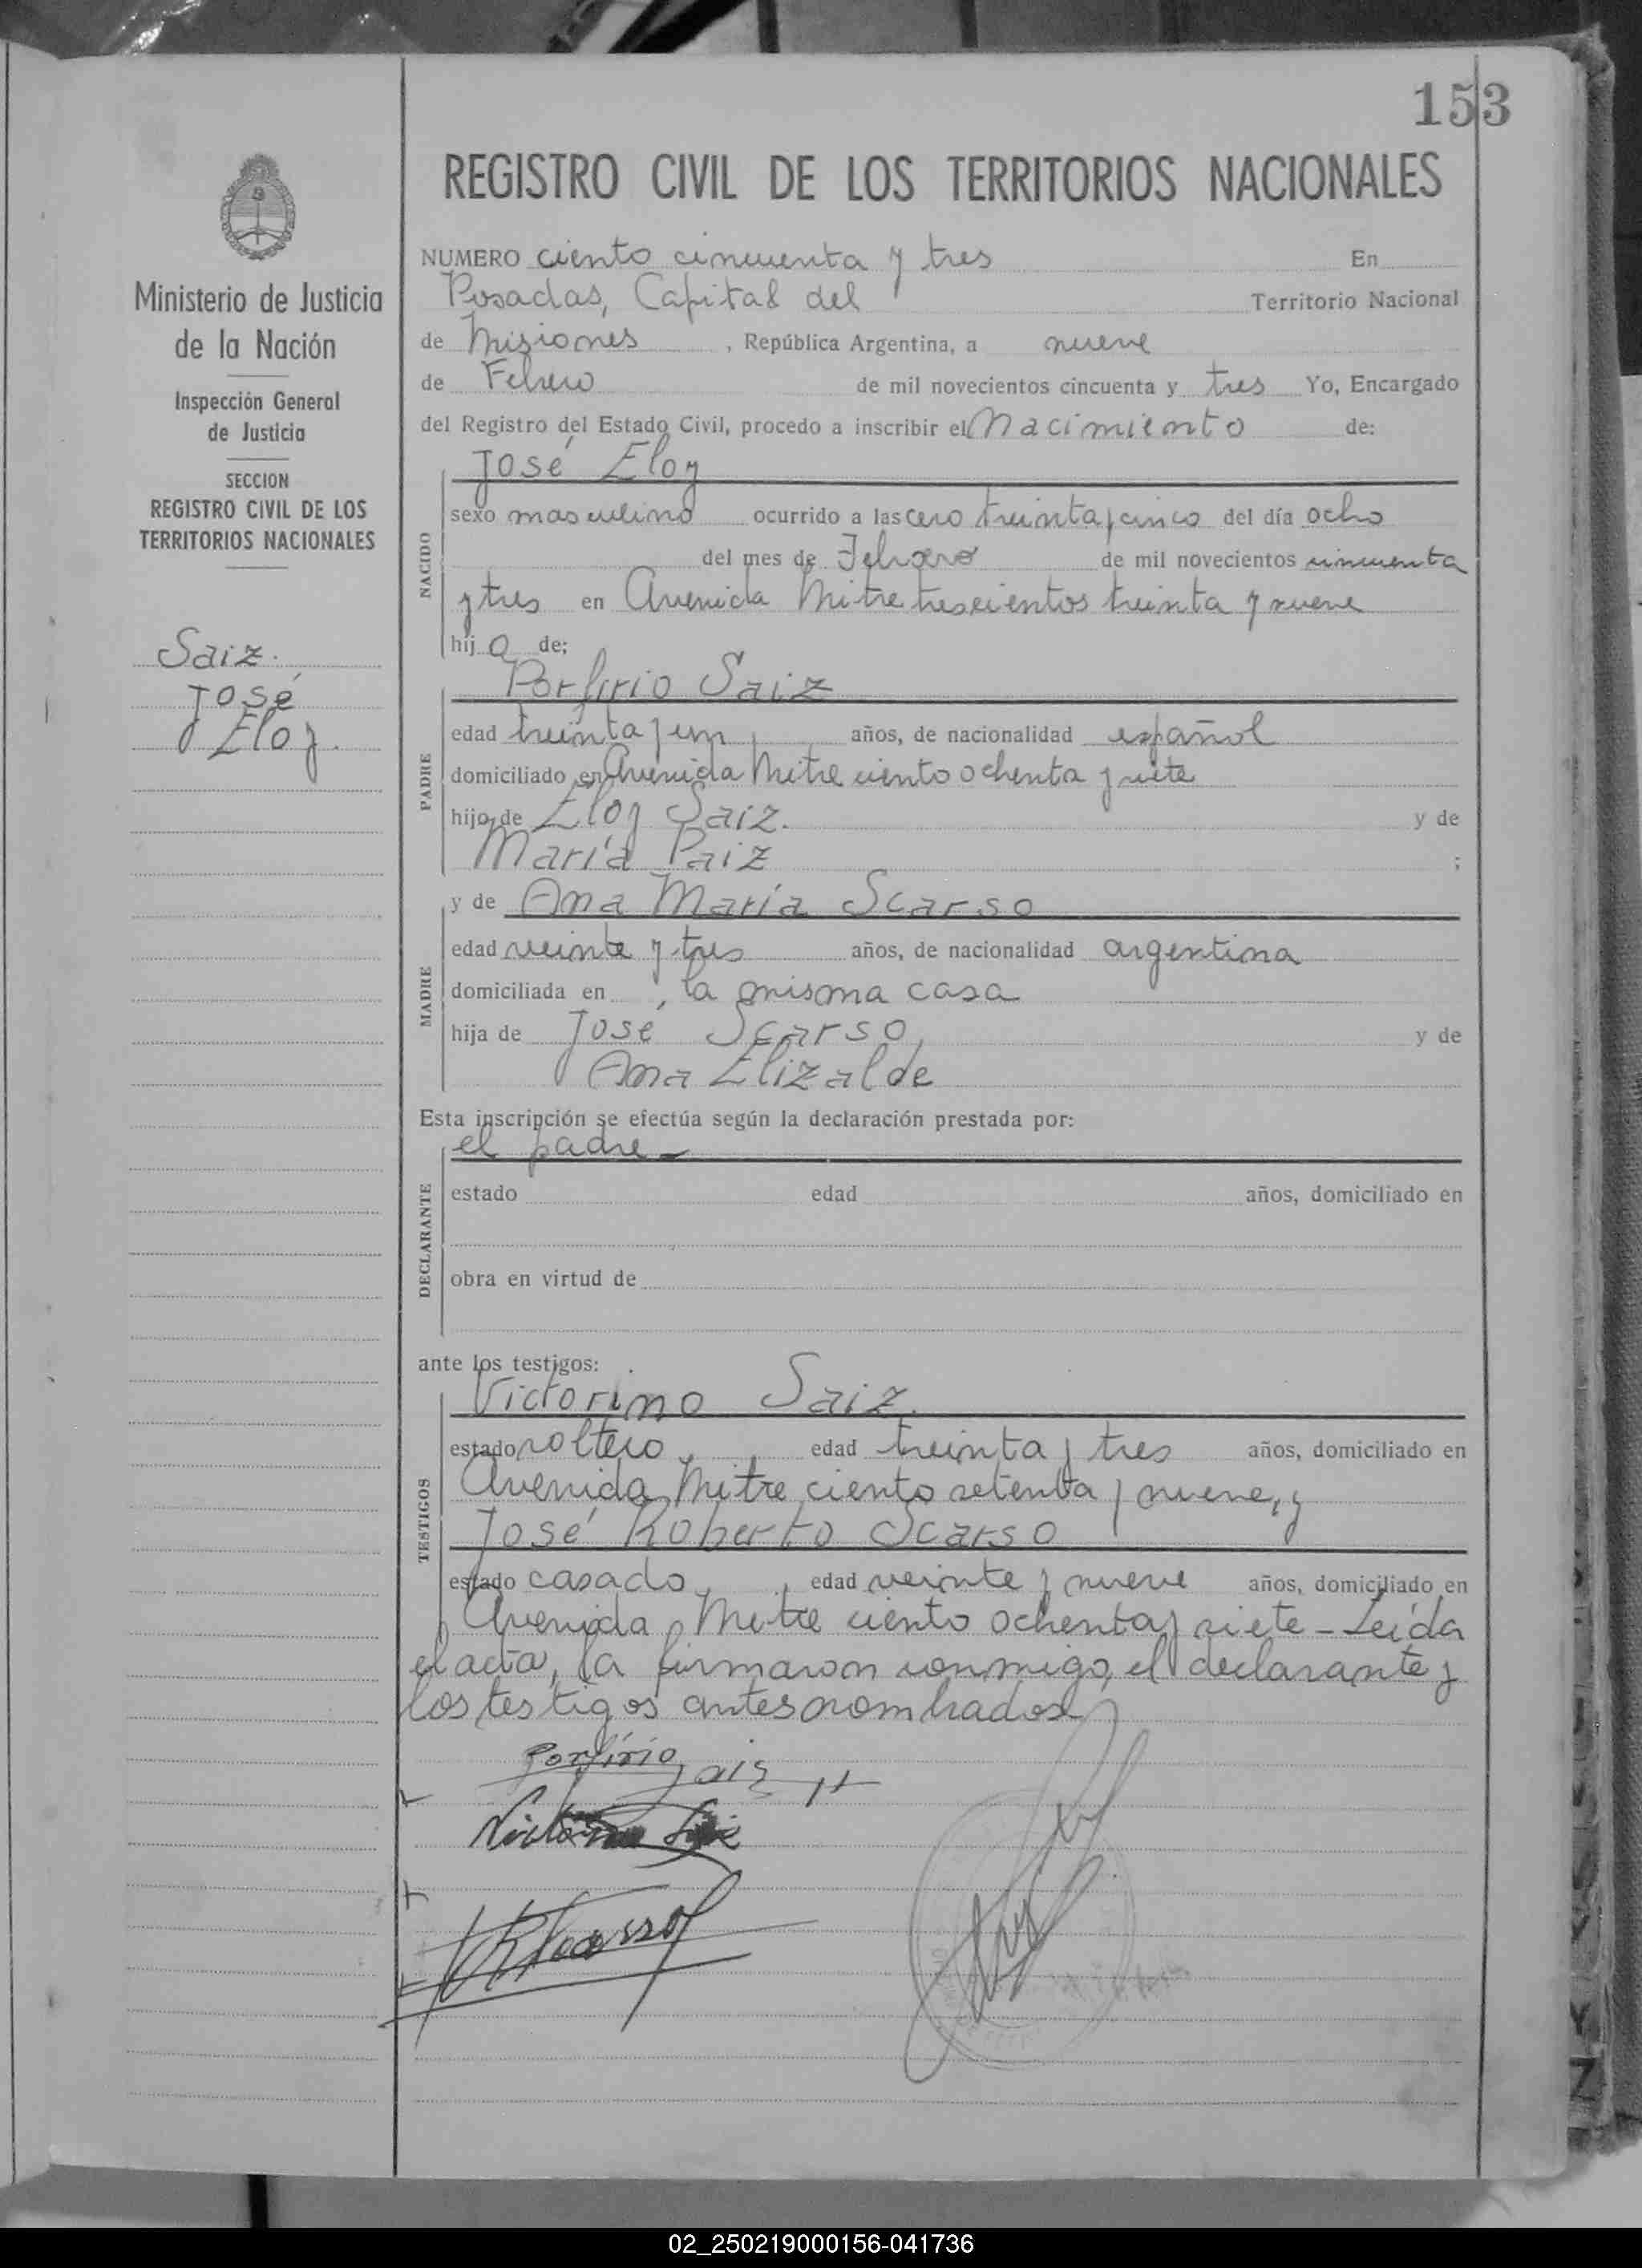 153
REGISTRO CIVIL DE LOS TERRITORIOS NACIONALES
Ministerio de Justicia
de la Nación
Inspección General
de Justicia
SECCION
REGISTRO CIVIL DE LOS
TERRITORIOS NACIONALES
Saiz.
José
Eloy.
NUMERO ciento cincuenta y tres En
Posadas, Capital del Territorio Nacional
de Misiones , República Argentina, a nueve
de Febrero de mil novecientos cincuenta y tres Yo, Encargado
del Registro del Estado Civil, procedo a inscribir el Nacimiento de:
José Eloy
NACIDO
sexo masculino ocurrido a las cero treinta y cinco del día ocho
del mes de Febrero de mil novecientos cincuenta
y tres en Avenida Mitre trescientos treinta y nueve
hij o de;
Porfirio Saiz
PADRE
edad treinta y un años, de nacionalidad español
domiciliado en Avenida Mitre ciento ochenta y siete
hijo de Eloy Saiz. y de
María Paiz ;
y de Ana María Scarso
MADRE
edad veinte y tres años, de nacionalidad argentina
domiciliada en la misma casa
hija de José Scarso, y de
Ana Elizalde
Esta inscripción se efectúa según la declaración prestada por:
el padre -
DECLARANTE
estado edad años, domiciliado en
obra en virtud de
ante los testigos:
Victorino Saiz.
TESTIGOS
estado soltero, edad treinta y tres años, domiciliado en
Avenida Mitre ciento setenta y nueve, y
José Roberto Scarso
estado casado, edad veinte y nueve años, domiciliado en
Avenida Mitre ciento ochenta y siete - Leída
el acta, la firmaron conmigo, el declarante y
los testigos antes nombrados
Porfirio Saiz
Victorino Saiz
JRScarso
02_250219000156-041736